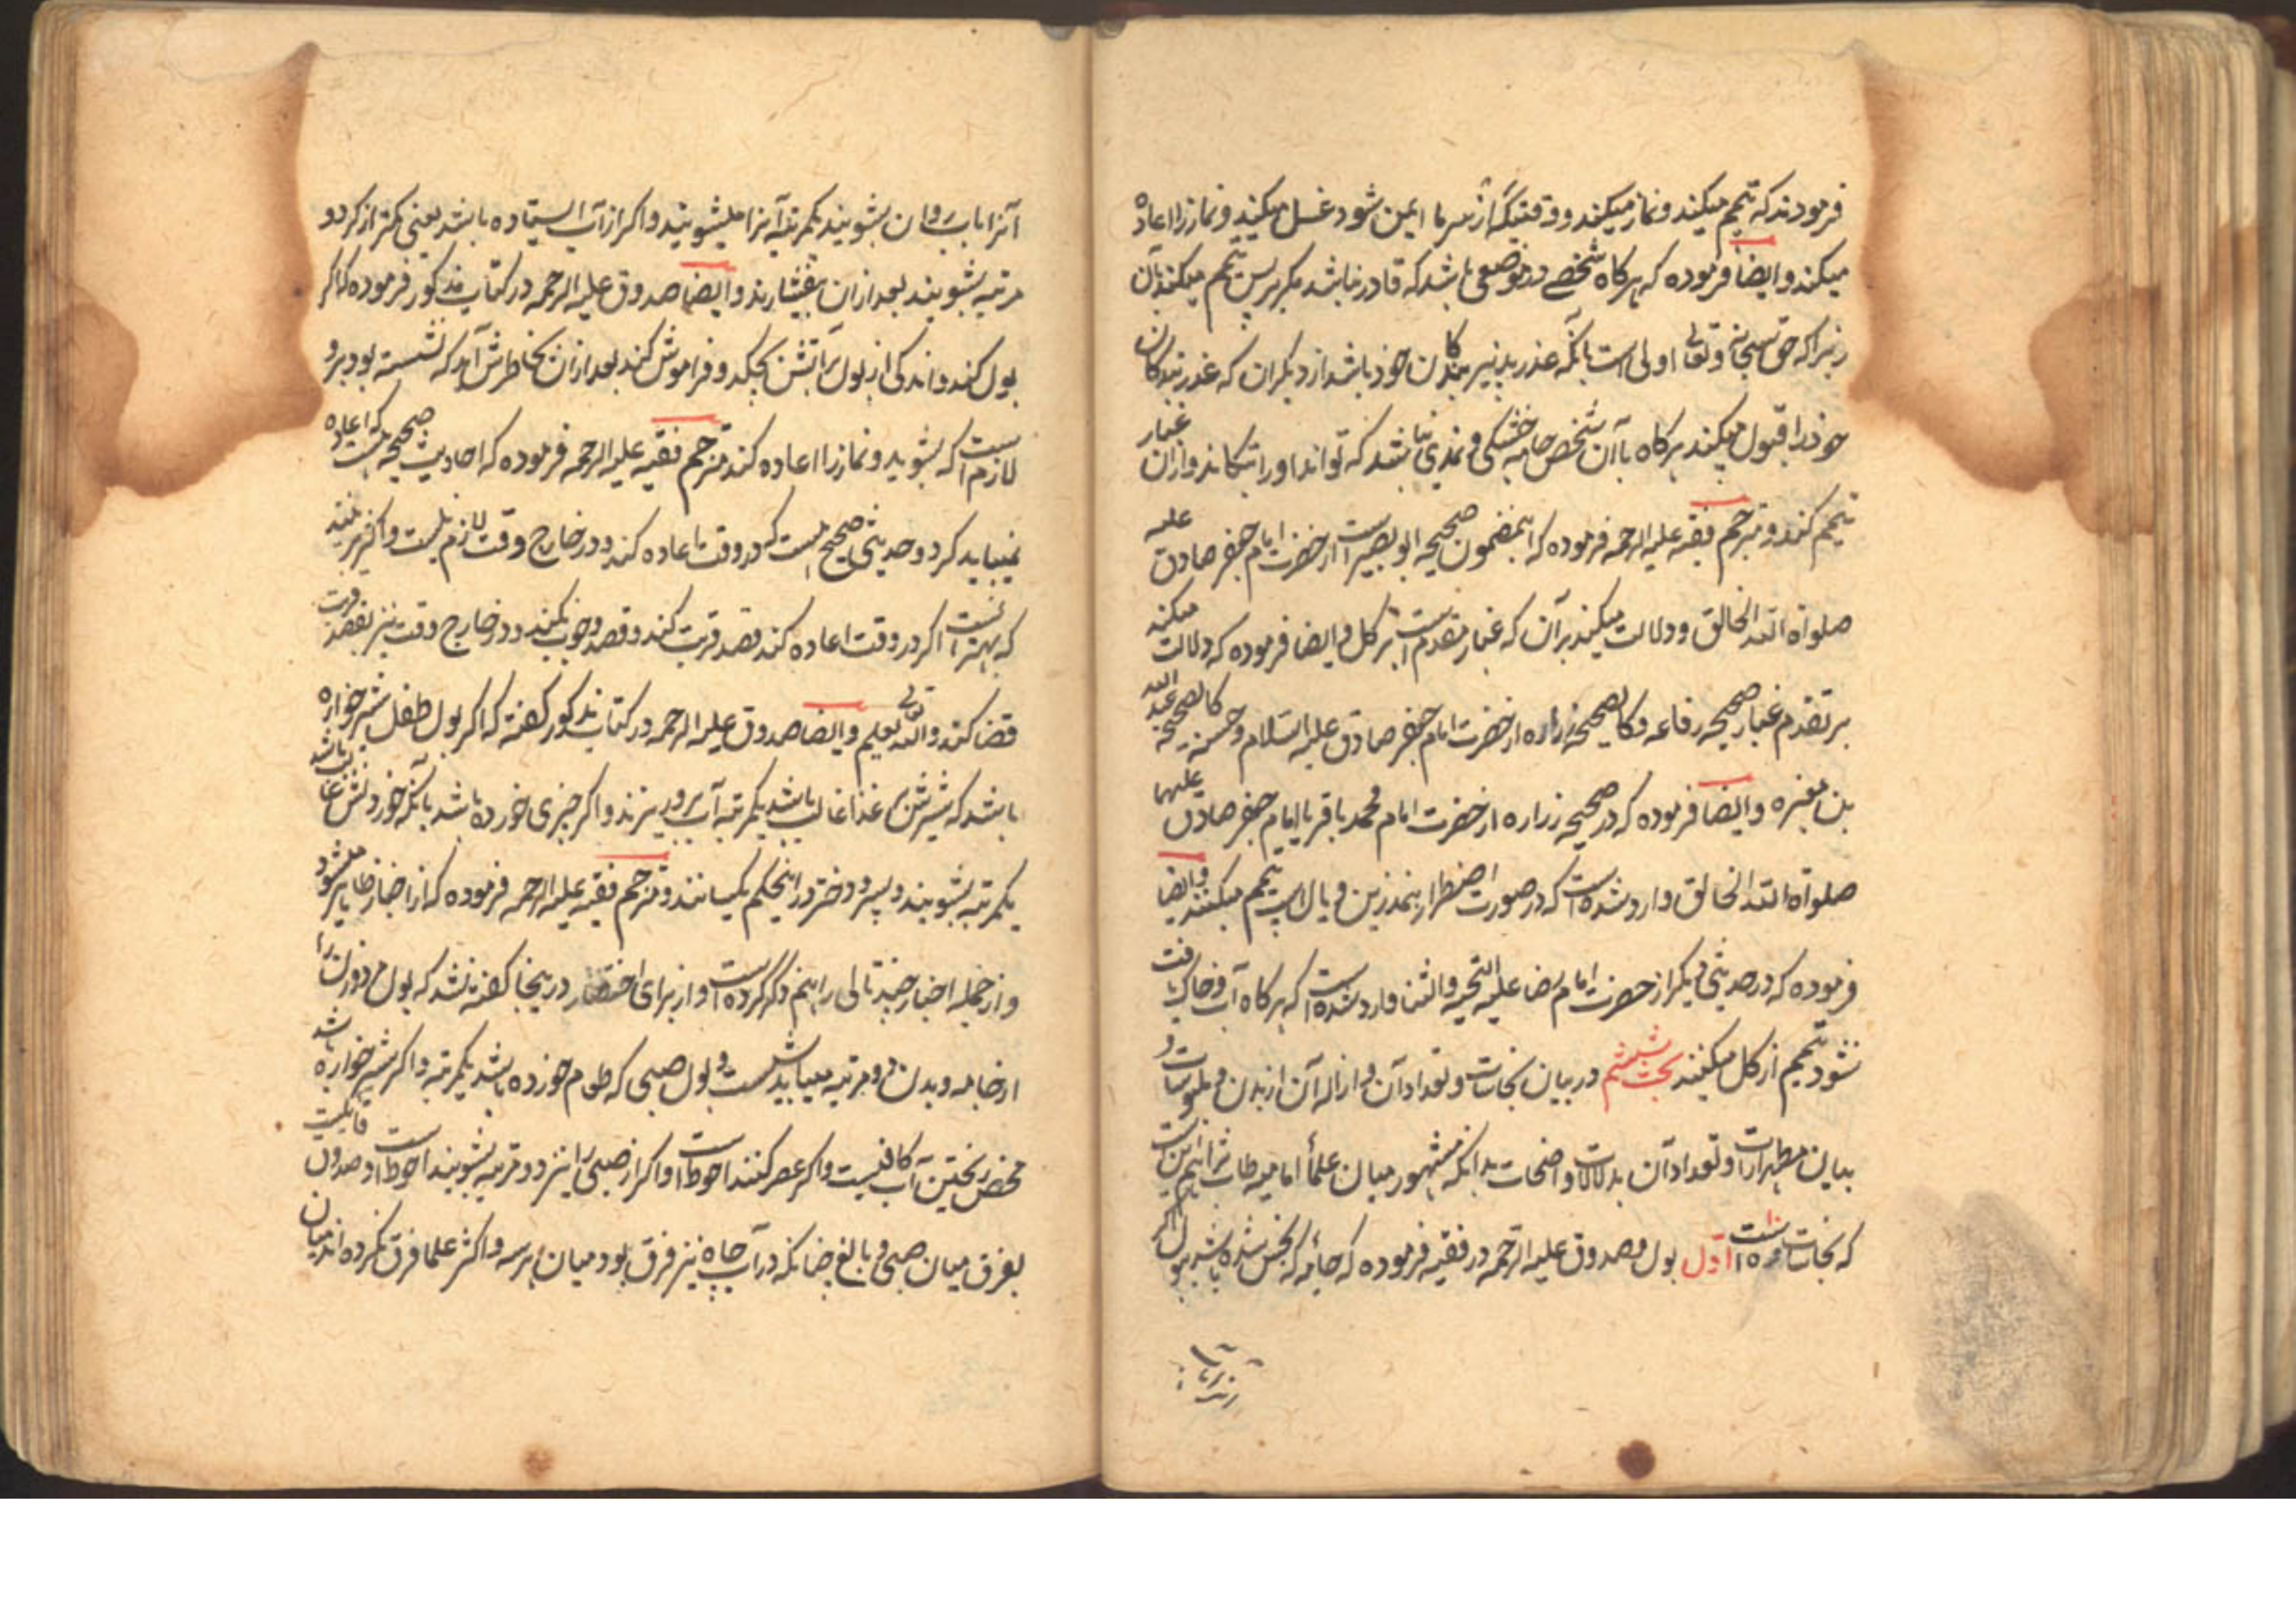 فرمودند که تیمم میکند و نماز میکند و وقتیکه از سرما ایمن شود غسل میکند و نماز را اعاده
میکند و ایضا فرموده که هرکاه شخصے در موضعی باشد که قادر نباشد مکر بر پس تیمم میکند بآن
زیرا که حق سبحانه و تعالی اولی است بانکه عذر پذیر بندکان خود باشد از دیکران که عذر بندکان
خود را قبول میکند هرکاه با آن شخص جامه خشکی و نمدی نباشد که تواند او را بتکاند و از ان غبار
تیمم کند و مترجم فقیه علیه الرحمه فرموده که اینمضمون صحیحه ابو بصیر است از حضرت امام جعفر صادق علیه
صلوات الله الخالق و دلالت میکند بر آن که غبار مقدم است بر کل و ایضا فرموده که دلالت میکند
بر تقدم غبار صحیحه رفاعه و کالصحیحه زراره از حضرت امام جعفر صادق علیه السلام و حسنه کالصحیحه عبد الله
بن مغیره و ایضا فرموده که در صحیحه زراره از حضرت امام محمد باقر یا امام جعفر صادق علیهما
صلوات الله الخالق وارد شده است که در صورت اضطرار بنمد زین و یال اسپ تیمم میکنند و ایضا
فرموده که در حدیثی دیکر از حضرت امام رضا علیه التحیه والثنا وارد شده است که هرکاه آب و خاک یافت
نشود تیمم از کل میکنند بحث ششم در بیان نجاسات و تعداد آن و ازاله آن از بدن و ملبوسات و
بیان مطهرات و تعداد آن بدلالات واضحات بدانکه مشهور میان علمأ امامیه طاب ثراهم این است
که نجاسات ده است اول بول و صدوق علیه الرحمه در فقیه فرموده که جأمه که نجس شده باشد ببول اکر
آنرا باب روان بشویند یکمرتبه آنرا میشویند و اکر از آب ایستاده باشد یعنی کمتر از کر دو
مرتبه بشویند بعد از ان بفشارند و ایضا صدوق علیه الرحمه در کتاب مذکور فرموده که اکر
بول کند و اندکی از بول برانش بچکد و فراموش کند بعد از ان بخاطرش آمد که نشسته بود برو
لازم است که بشوید و نماز را اعاده کند مترجم فقیه علیه الرحمه فرموده که احادیث صحیحه هست که اعاده
نمیباید کرد و حدیثی صحیح هست که در وقت اعاده کند و در خارج وقت لازم نیست و اکثر برینند
که بهتر آنست اکر در وقت اعاده کند قصد قربت کند و قصد وجوب نکند و در خارج وقت نیز بقصد قربت
قضا کند و الله تعالی یعلم و ایضا صدوق علیه الرحمه در کتاب مذکور کفته که اکر بول طفل شیرخواره
باشد که شیرش بر غذا غالب باشد یکمرتبه آب برو ریزند و اکر چیزی خورده باشد بانکه خوردنش غالب باشد
یکمرتبه بشویند و پسر و دختر در اینحکم یکسانند و مترجم فقیه علیه الرحمه فرموده که از اخبار ظاهر میشود
و از جمله اخبار چند تا لی را هم ذکر کرده است و از برای اختصار در ینجا کفته نشد که بول مرد و زن را
از جامه و بدن دو مرتبه میباید شست و بول صبی که طعام خورده باشد یکمرتبه و اکر شیرخواره باشد
محض ریختن آب کافیست و اکر عصر کنند احوط است و اکر از صبی را نیز دو مرتبه بشویند احوط است و صدوق قایلست
بفرق میان صبی و بالغ چنانکه در آب چاه نیز فرق بود میان هر سه و اکثر علما فرق نکرده اند میان